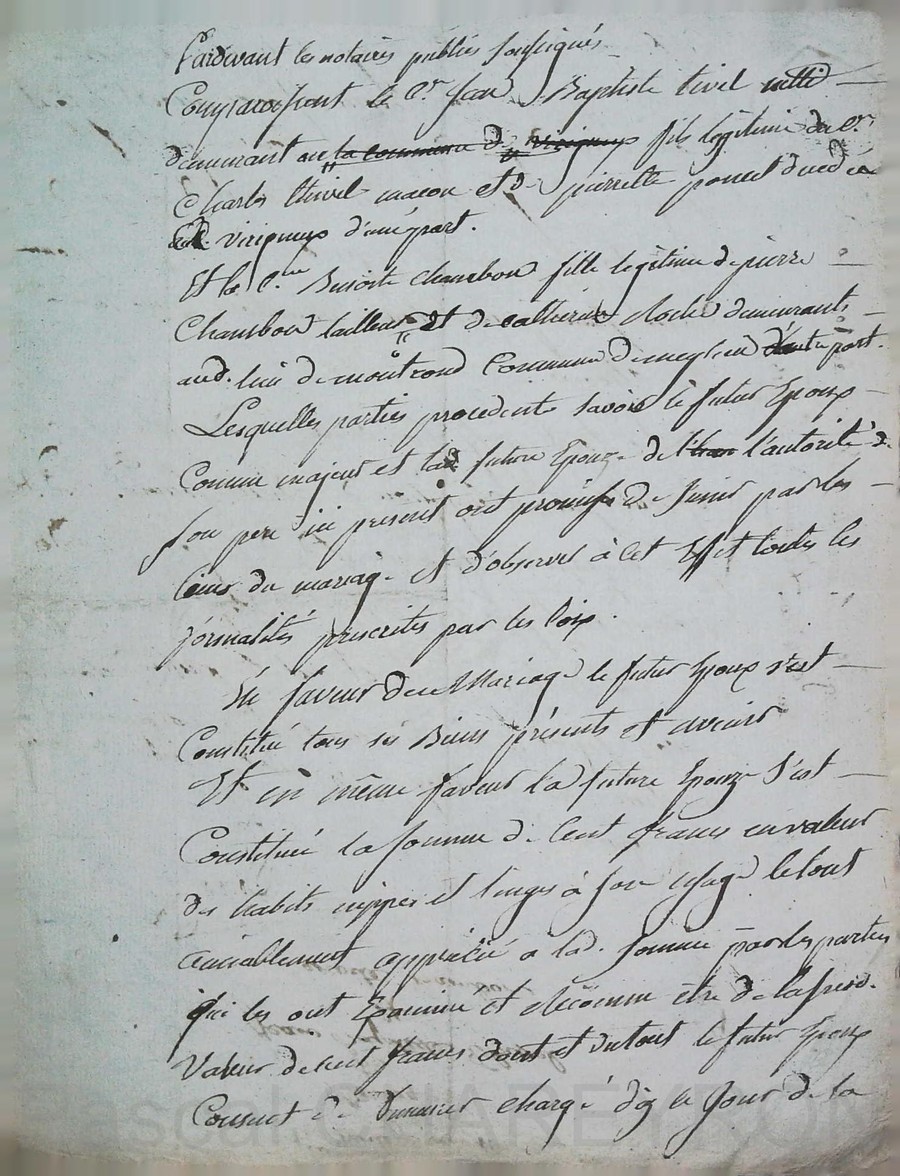 Pardevant les notaires publics soussignés
Comparaissent le Cn Jean Baptiste thivel
demeurant au la commune de virigneux fils legitime du Cn
Charles thivel macon et de pierrette poncet
virigneux d'une part.
Et la C.ne Benoite Chambon fille legitime de pierre
Chambon tailleur et de catherine demeurants
aud. lieu de montrond Commune de d'autre part.
Lesquelles parties procedents savoir le futur Epoux
Comme majeur et lad future Epouze de l'autorité de
son pere ici present ont promis de S'unir par les
liens du mariage et d'observer à cet Effet toutes les
formalités prescrites par les loix.
En faveur du Mariage le futur Epoux s'est
Constitué tous ses Biens présents et avenir
Et en même faveur la future Epouze S'est
Constituée la somme de Cent francs en valeur
des habits nippes et linges à son usage le tout
amiablement apprécié a lad. somme par les parties
qui les ont Examiné et Reconnu être de la susd.
Valeur de cent francs dont et du tout le futur Epoux
Consent de demeurer chargé dès le Jour de la